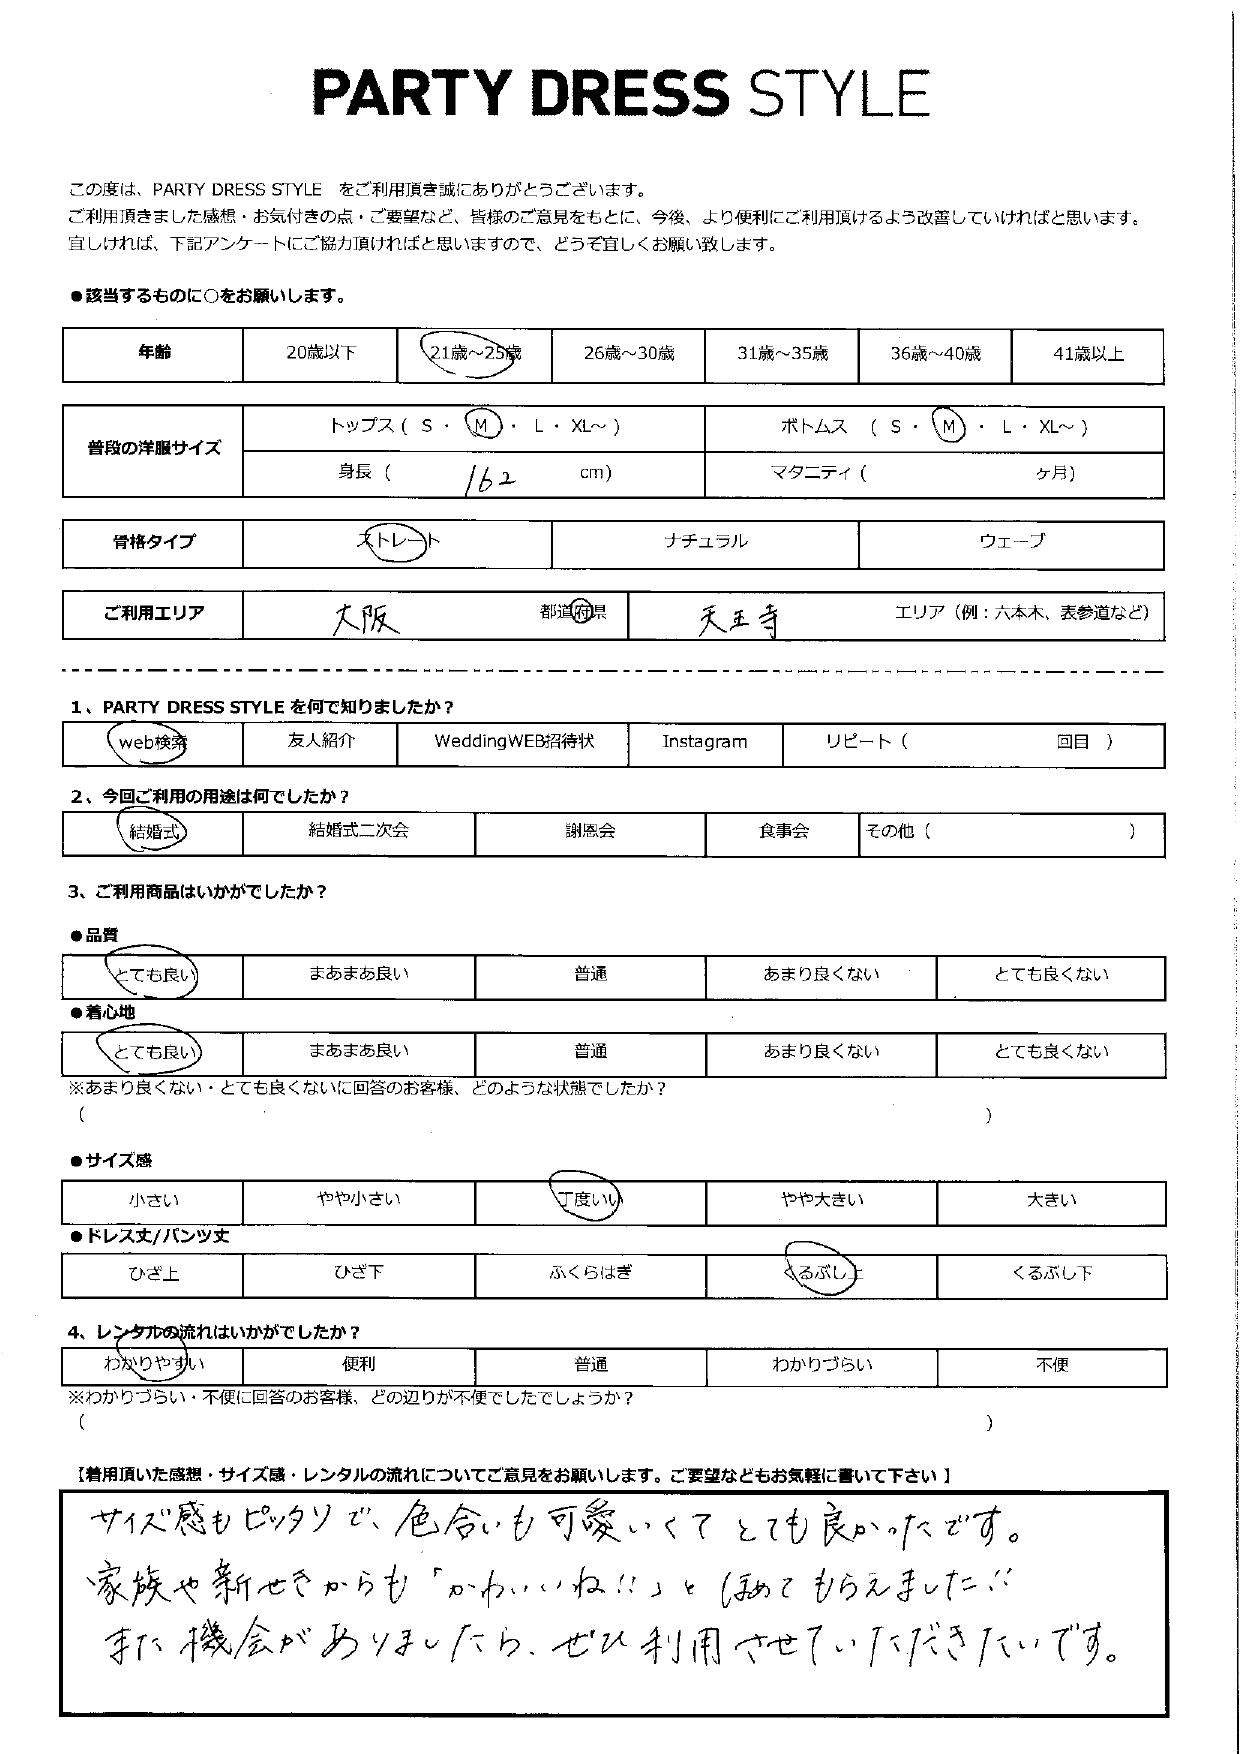 PARTY DRESS STYLE
この度は、PARTY DRESS STYLE　をご利用頂き誠にありがとうございます。
ご利用頂きました感想・お気付きの点・ご要望など、皆様のご意見をもとに、今後、より便利にご利用頂けるよう改善していければと思います。
宜しければ、下記アンケートにご協力頂ければと思いますので、どうぞ宜しくお願い致します。
●該当するものに○をお願いします。
年齢 20歳以下 21歳～25歳 26歳～30歳 31歳～35歳 36歳～40歳 41歳以上
普段の洋服サイズ トップス ( S ・ M ・ L ・ XL～ ) ボトムス ( S ・ M ・ L ・ XL～ )
身長 ( 162 cm) マタニティ ( ヶ月)
骨格タイプ ストレート ナチュラル ウェーブ
ご利用エリア 大阪 都道府県 天王寺 エリア（例：六本木、表参道など）
1、PARTY DRESS STYLE を何で知りましたか？
web検索 友人紹介 WeddingWEB招待状 Instagram リピート ( 回目 )
2、今回ご利用の用途は何でしたか？
結婚式 結婚式二次会 謝恩会 食事会 その他 ( )
3、ご利用商品はいかがでしたか？
●品質
とても良い まあまあ良い 普通 あまり良くない とても良くない
●着心地
とても良い まあまあ良い 普通 あまり良くない とても良くない
※あまり良くない・とても良くないに回答のお客様、どのような状態でしたか？
( )
●サイズ感
小さい やや小さい 丁度いい やや大きい 大きい
●ドレス丈/パンツ丈
ひざ上 ひざ下 ふくらはぎ くるぶし上 くるぶし下
4、レンタルの流れはいかがでしたか？
わかりやすい 便利 普通 わかりづらい 不便
※わかりづらい・不便に回答のお客様、どの辺りが不便でしたでしょうか？
( )
【着用頂いた感想・サイズ感・レンタルの流れについてご意見をお願いします。ご要望などもお気軽に書いて下さい】
サイズ感もピッタリで、色合いも可愛いくてとても良かったです。
家族や新せきからも「かわいいね!!」とほめてもらえました!!
また機会がありましたら、ぜひ利用させていただきたいです。